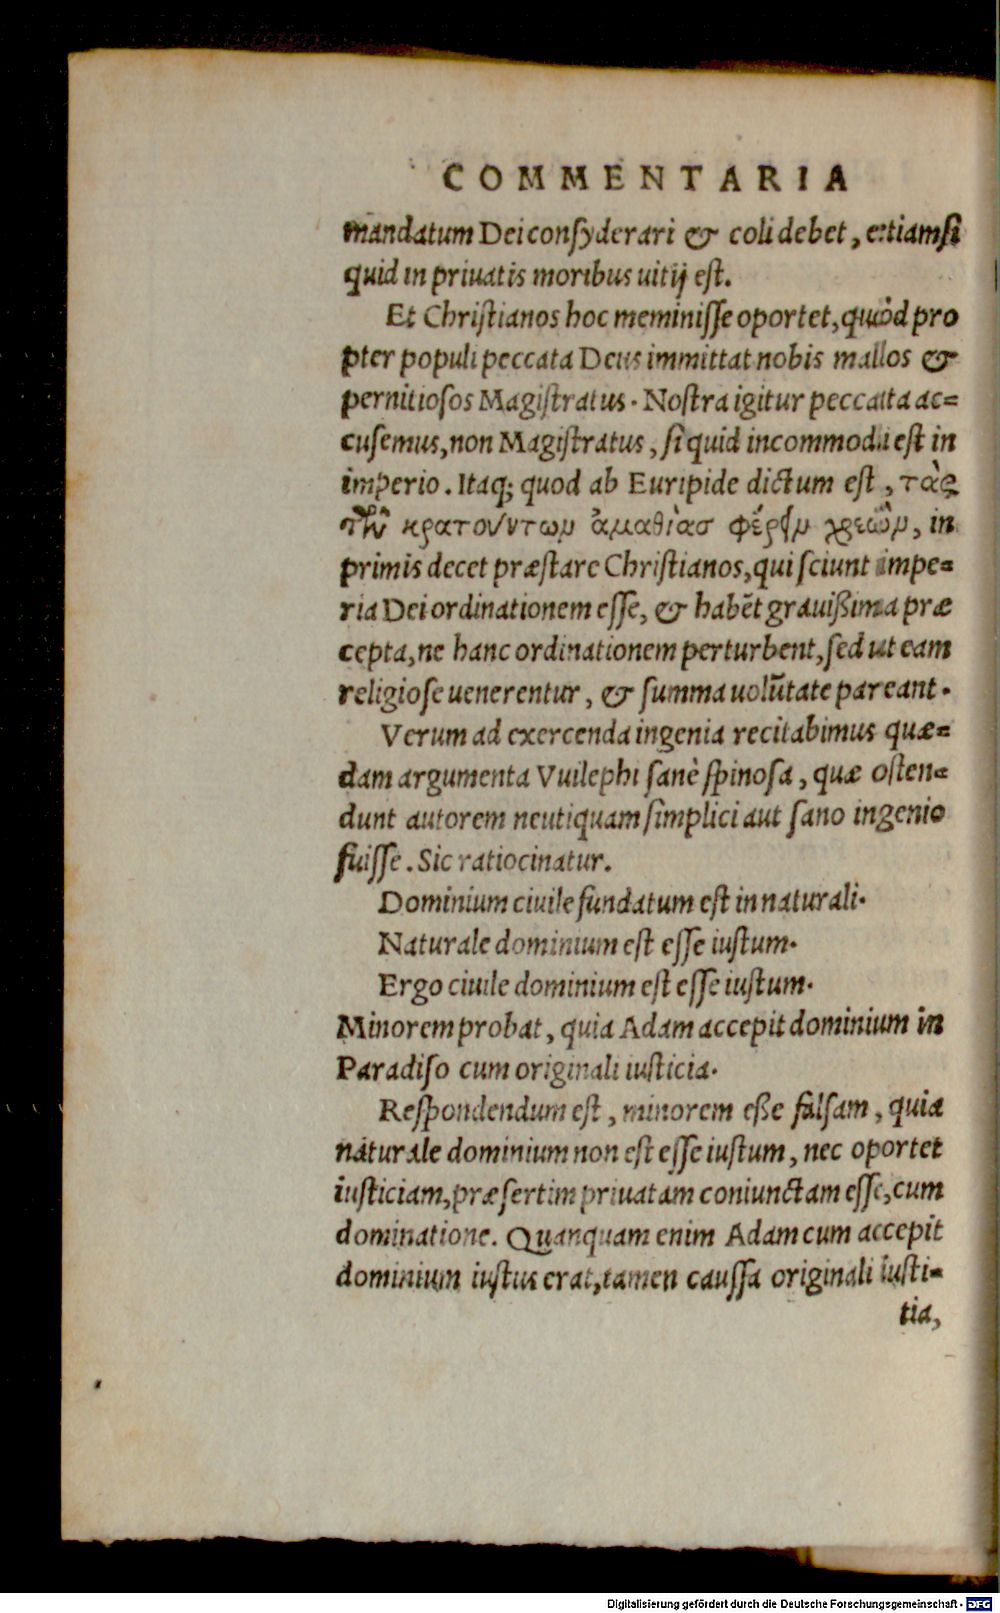 COMMENTARIA
mandatum Dei consyderari & coli debet, etiamsi
quid in priuatis moribus uitij est.
Et Christianos hoc meminisse oportet, quòd pro
pter populi peccata Deus immittat nobis mallos &
pernitiosos Magistratus. Nostra igitur peccata ac=
cusemus, non Magistratus, si quid incommodi est in
imperio. Itaq; quod ab Euripide dictum est, τὰς
τῶν κρατούντων ἀμαθίασ φέρειν χρεών, in
primis decet præstare Christianos, qui sciunt impe=
ria Dei ordinationem esse, & habẽt grauißima præ
cepta, ne hanc ordinationem perturbent, sed ut eam
religiose uenerentur, & summa uolũtate pareant.
Verum ad exercenda ingenia recitabimus quæ=
dam argumenta Vuilephi sanè spinosa, quæ osten=
dunt autorem neutiquam simplici aut sano ingenio
fuisse. Sic ratiocinatur.
Dominium ciuile fundatum est in naturali.
Naturale dominium est esse iustum.
Ergo ciuile dominium est esse iustum.
Minorem probat, quia Adam accepit dominium in
Paradiso cum originali iusticia.
Respondendum est, minorem eße falsam, quia
naturale dominium non est esse iustum, nec oportet
iusticiam, præsertim priuatam coniunctam esse, cum
dominatione. Quanquam enim Adam cum accepit
dominium iustus erat, tamen caussa originali iusti=
tia,
Digitalisierung gefördert durch die Deutsche Forschungsgemeinschaft - DFG